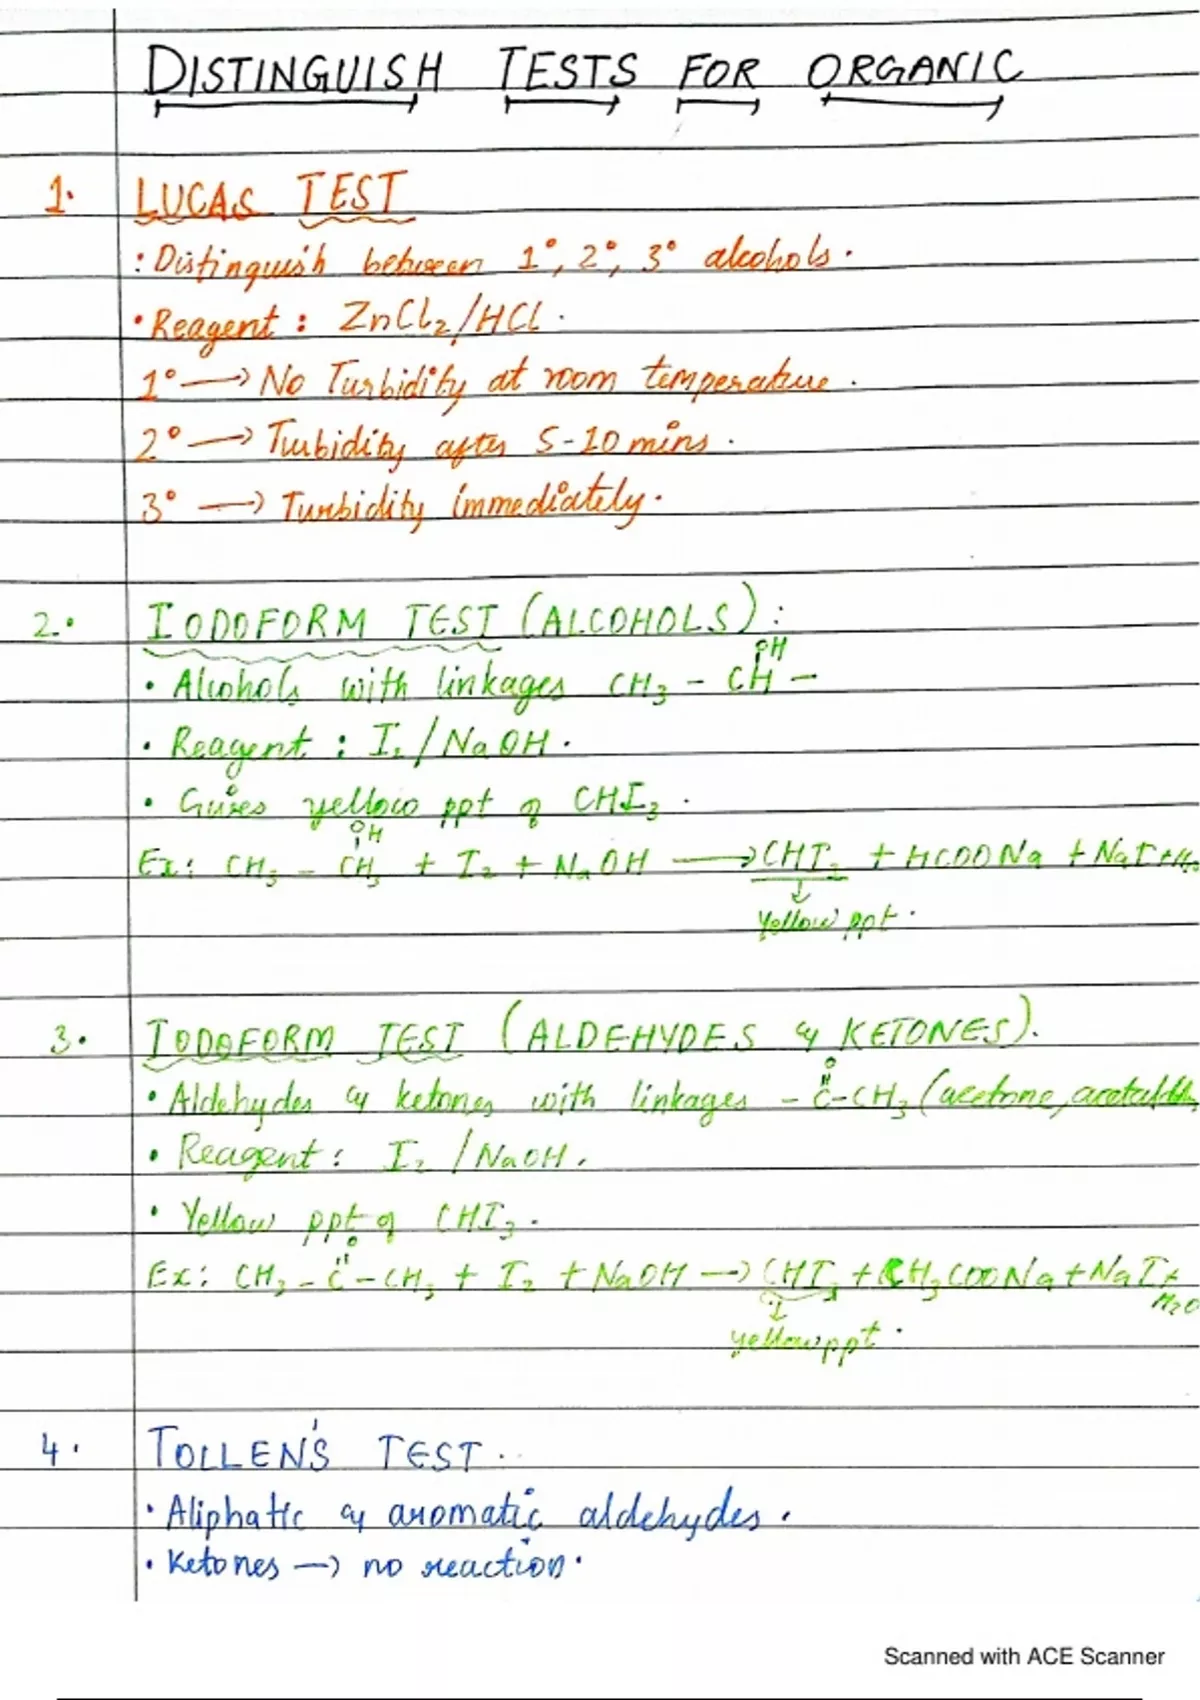 DISTINGUISH TESTS FOR ORGANIC
1. LUCAS TEST
: Distinguish between 1°, 2°, 3° alcohols.
• Reagent : ZnCl₂/HCl.
1° → No Turbidity at room temperature.
2° → Turbidity after 5-10 mins.
3° → Turbidity immediately.
2. IODOFORM TEST (ALCOHOLS) :
OH
• Alcohols with linkages CH₃ - CH -
• Reagent : I₂/NaOH.
• Gives yellow ppt of CHI₃.
OH
Ex: CH₃ - CH₃ + I₂ + NaOH → CHI₃ + HCOONa + NaI +H₂
Yellow ppt.
3. IODOFORM TEST (ALDEHYDES & KETONES).
O
• Aldehydes & ketones with linkages - C-CH₃ (acetone, acetaldeh
• Reagent : I₂ /NaOH.
• Yellow ppt of CHI₃.
O
Ex: CH₃ - C - CH₃ + I₂ + NaOH → CHI₃ + CH₃COONa + NaI +
H₂O
yellow ppt.
4. TOLLEN'S TEST.
• Aliphatic & aromatic aldehydes.
• Ketones → no reaction.
Scanned with ACE Scanner